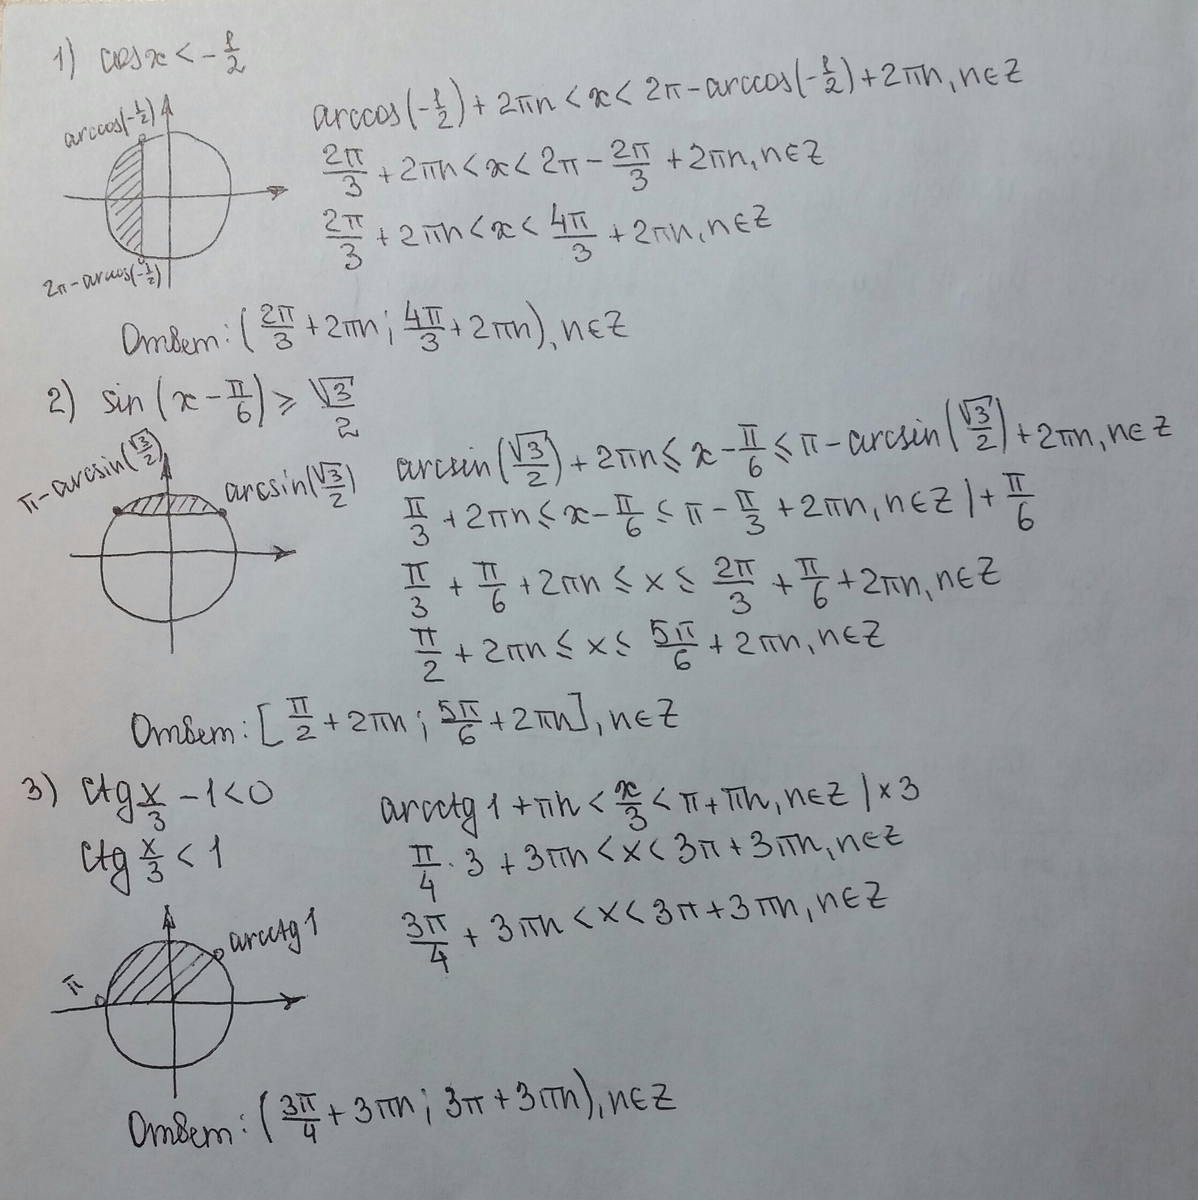 1) cosx < -1/2
arccos(-1/2)
2π-arccos(-1/2)
arccos(-1/2) + 2πn < x < 2π - arccos(-1/2) + 2πn, n∈Z
2π/3 + 2πn < x < 2π - 2π/3 + 2πn, n∈Z
2π/3 + 2πn < x < 4π/3 + 2πn, n∈Z
Ответ: (2π/3 + 2πn; 4π/3 + 2πn), n∈Z
2) sin(x - π/6) ⩾ √3/2
π-arcsin(√3/2)
arcsin(√3/2)
arcsin(√3/2) + 2πn ⩽ x - π/6 ⩽ π - arcsin(√3/2) + 2πn, n∈Z
π/3 + 2πn ⩽ x - π/6 ⩽ π - π/3 + 2πn, n∈Z | + π/6
π/3 + π/6 + 2πn ⩽ x ⩽ 2π/3 + π/6 + 2πn, n∈Z
π/2 + 2πn ⩽ x ⩽ 5π/6 + 2πn, n∈Z
Ответ: [π/2 + 2πn; 5π/6 + 2πn], n∈Z
3) ctg x/3 - 1 < 0
ctg x/3 < 1
arcctg 1
π
arcctg 1 + πn < x/3 < π + πn, n∈Z | × 3
π/4 · 3 + 3πn < x < 3π + 3πn, n∈Z
3π/4 + 3πn < x < 3π + 3πn, n∈Z
Ответ: (3π/4 + 3πn; 3π + 3πn), n∈Z